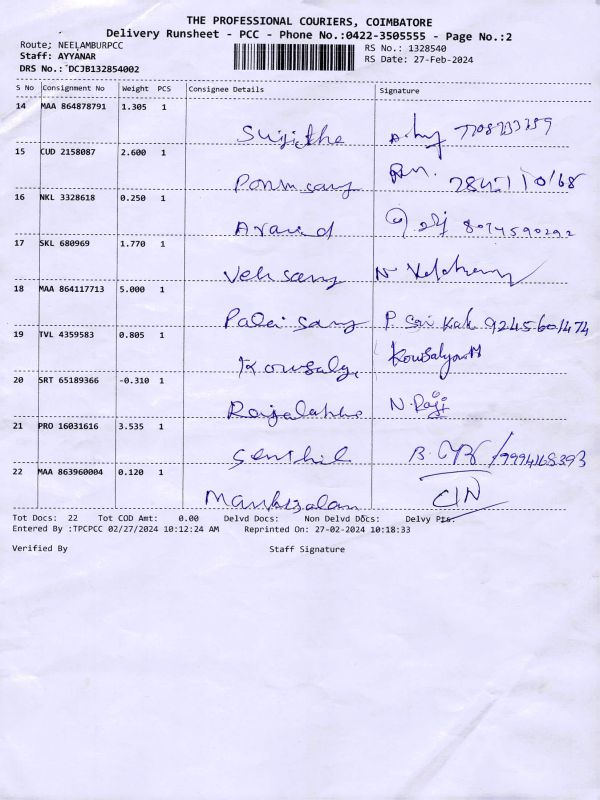 THE PROFESSIONAL COURIERS, COIMBATORE
Delivery Runsheet - PCC - Phone No.:0422-3505555 - Page No.:2
Route; NEELAMBURPCC RS No.: 1328540
Staff: AYYANAR RS Date: 27-Feb-2024
DRS No.: DCJB132854002
S No Consignment No Weight PCS Consignee Details Signature
14 MAA 864878791 1.305 1
Sujithe
15 CUD 2158087 2.600 1
Ponnusamy
16 NKL 3328618 0.250 1
Aravind
17 SKL 680969 1.770 1
Velusamy
18 MAA 864117713 5.000 1
Palaisamy P Sri Kak 9245601474
19 TVL 4359583 0.805 1
Kowsalya Kowsalya.M
20 SRT 65189366 -0.310 1
N.Raji
21 PRO 16031616 3.535 1
Senthil 9994168393
22 MAA 863960004 0.120 1
Tot Docs: 22 Tot COD Amt: 0.00 Delvd Docs: Non Delvd Docs: Delvy Pts:
Entered By :TPCPCC 02/27/2024 10:12:24 AM Reprinted On: 27-02-2024 10:18:33
Verified By Staff Signature